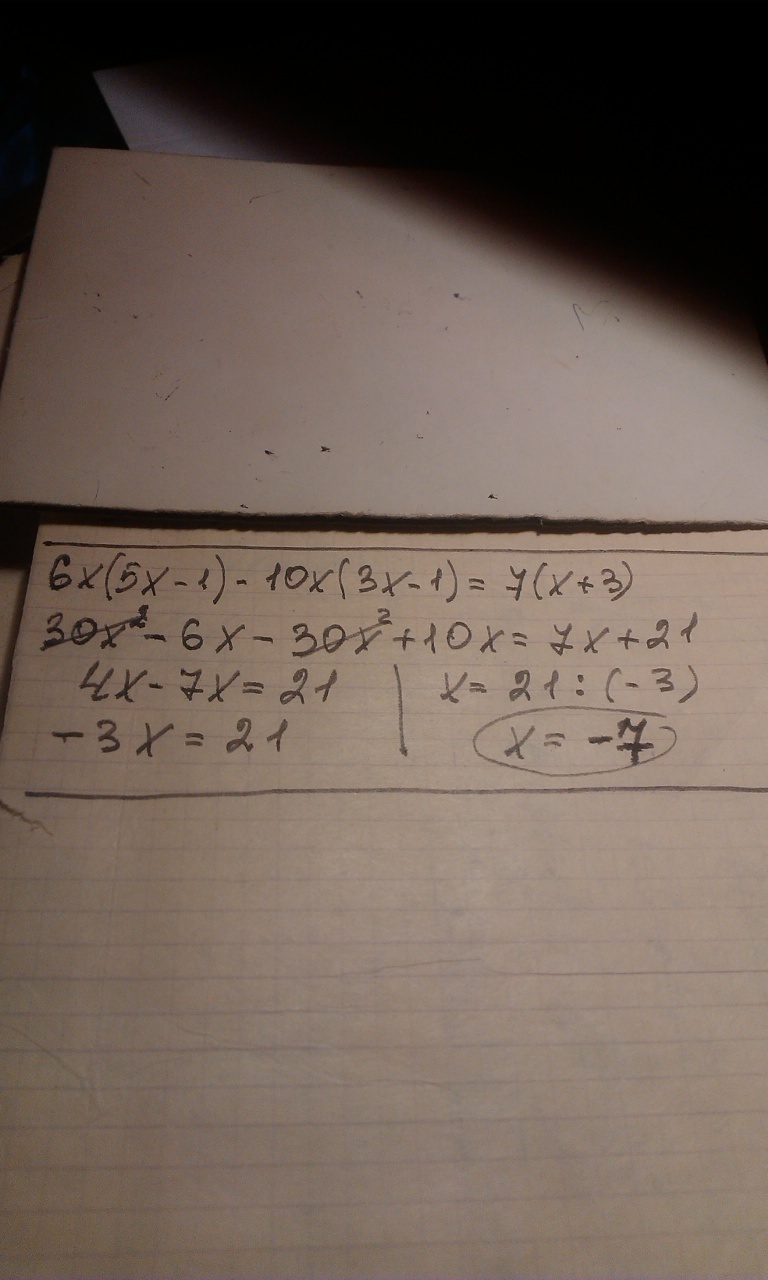 6x(5x-1)-10x(3x-1)=7(x+3)
30x²-6x-30x²+10x=7x+21
4x-7x=21
-3x=21
x=21:(-3)
x=-7